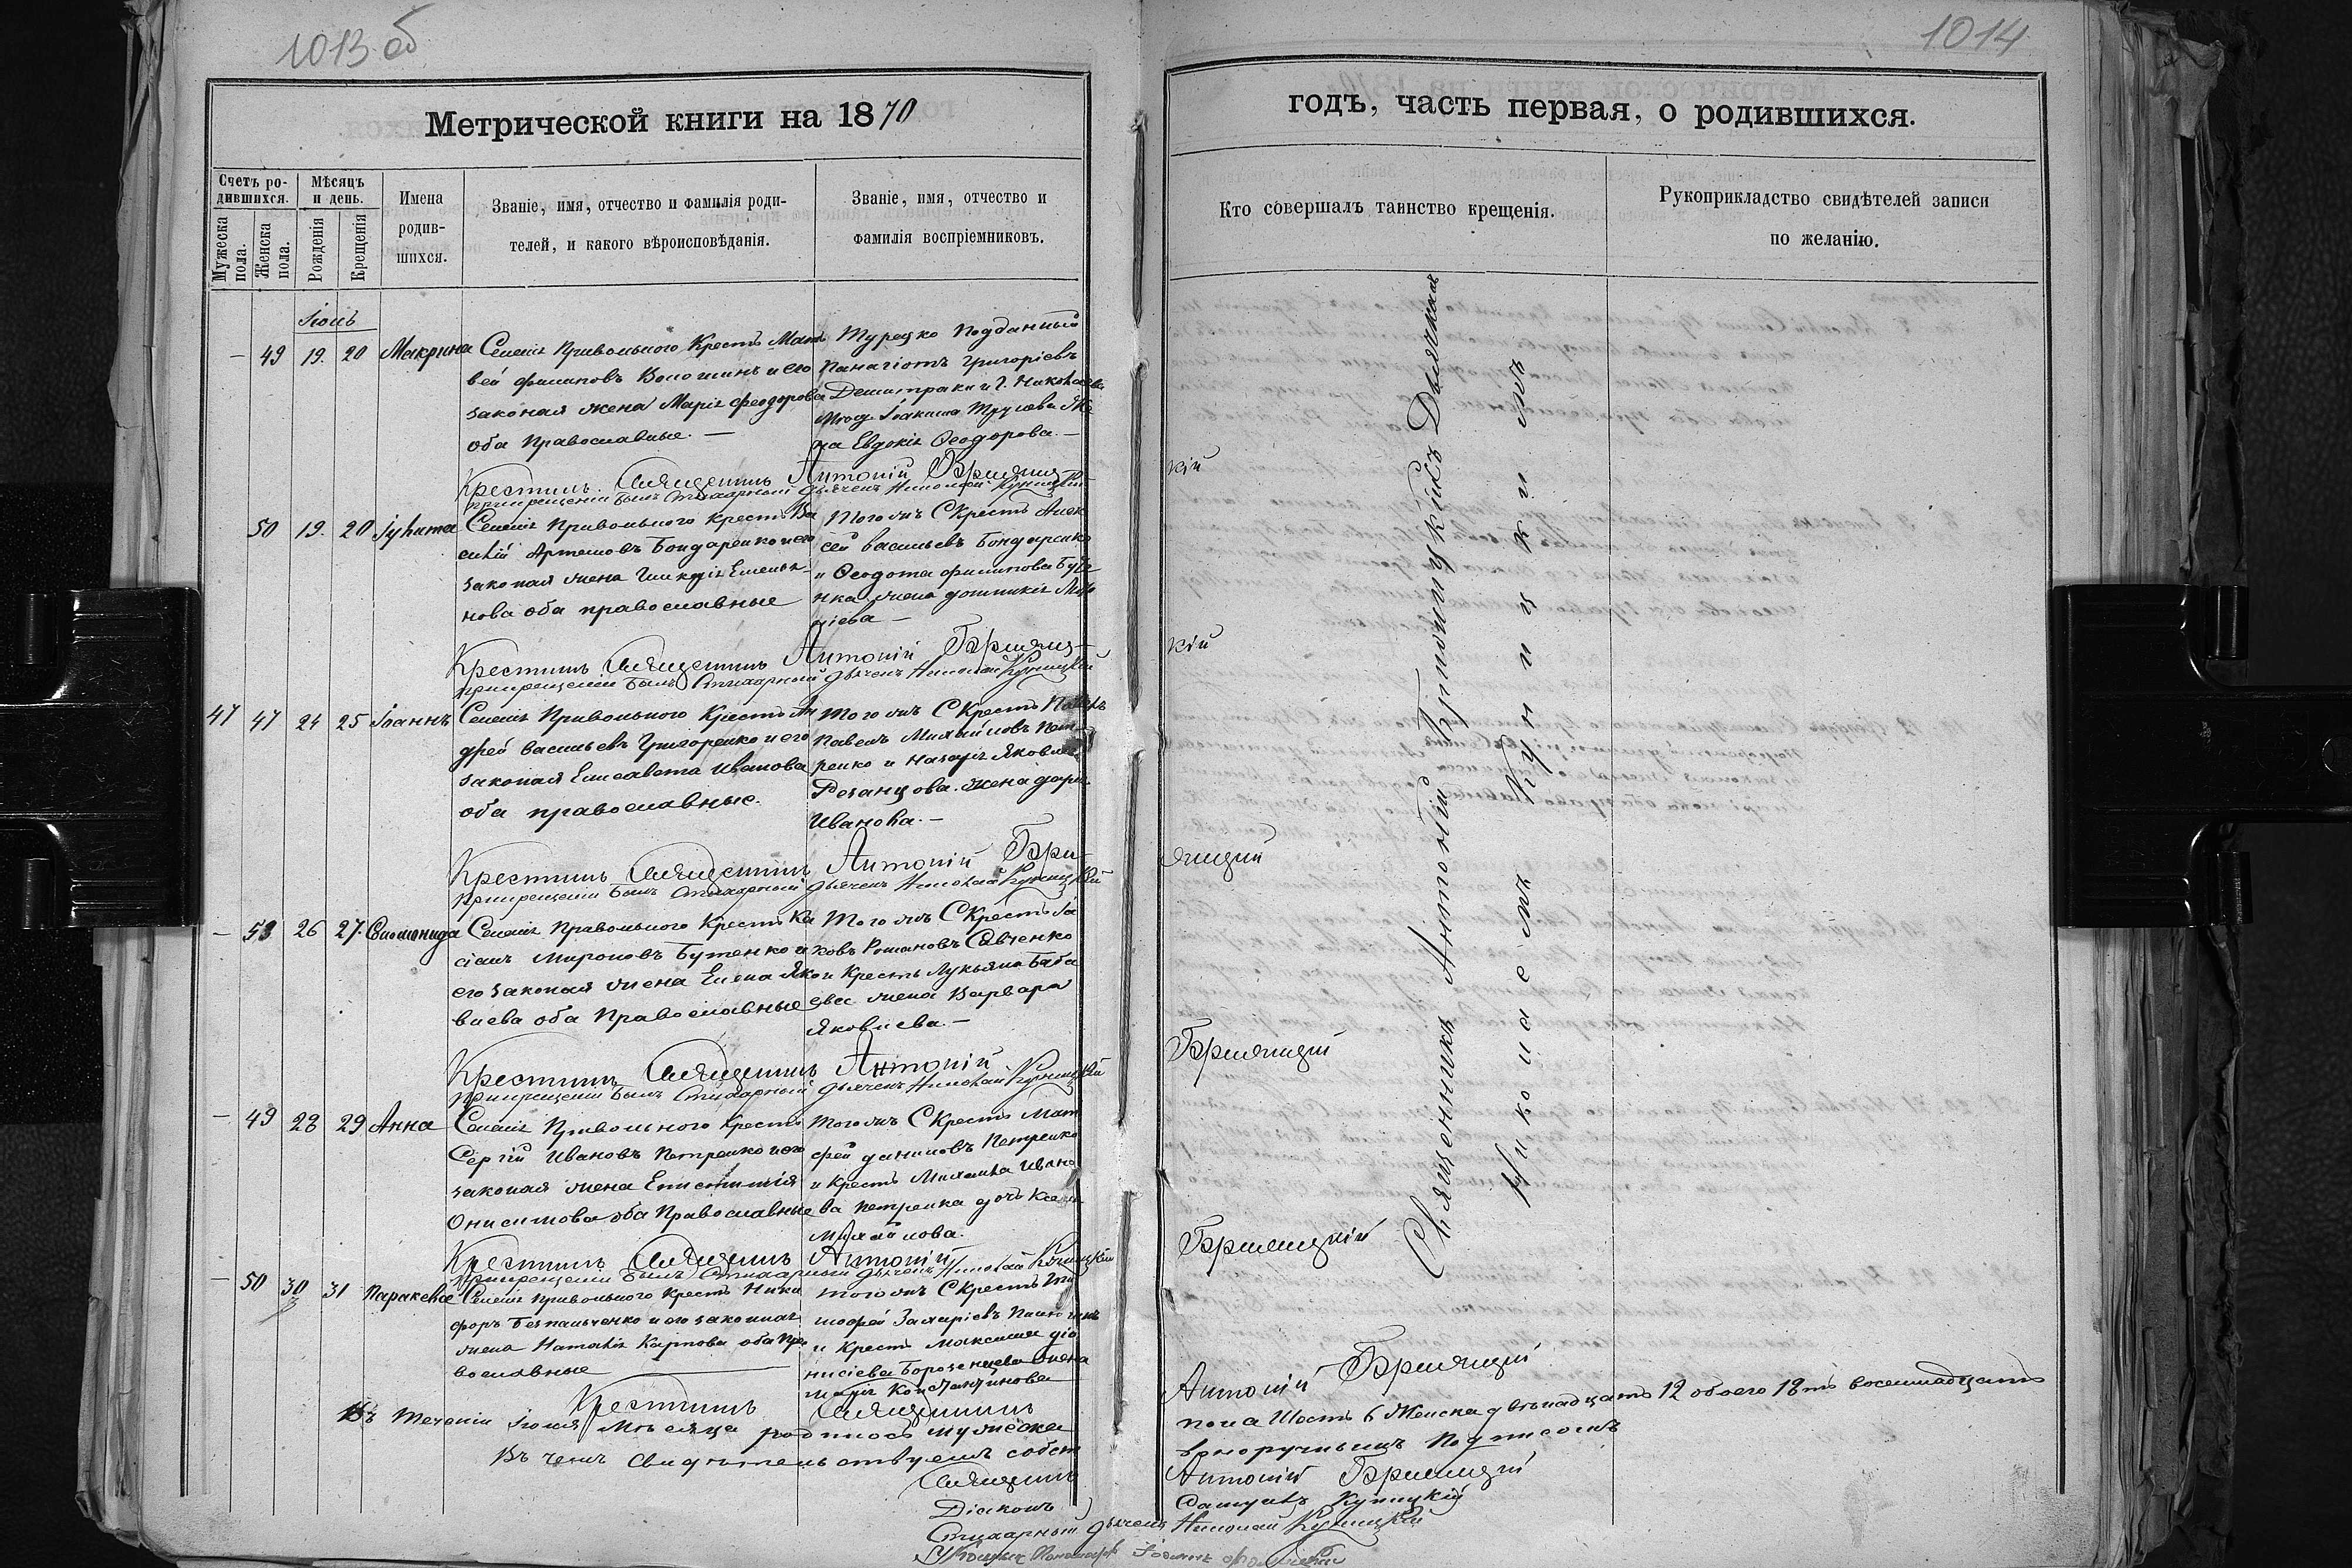 1013 об
1014
Метрической книги на 1870
годъ, часть первая, о родившихся.
Счетъ родившихся.
Мѣсяцъ и день.
Мужеска пола.
Женска пола.
Рожденія
Крещенія
Имена родившихся.
Званіе, имя, отчество и фамилія роди-
телей, и какого вѣроисповѣданія.
Званіе, имя, отчество и
фамилія воспріемниковъ.
Кто совершалъ таинство крещенія.
Рукоприкладство свидѣтелей записи
по желанію.
— 49 19. 20 Макрина
Селенія Привольного Крестъ Мат
вей Филиповъ Волошинъ и его
законая жена Марія Феодорова
оба Православные. —
Турецко Подданный
Панагіотъ Григоріевъ
Демитраки и Г. Николаева
Іоакима жe
на Евдокія Ѳеодорова. —
Крестилъ Священникъ Антоній Бриляц
кій
При крещеніи былъ Стихарный дьячекъ Николай Куницкій
50 19. 20 Іулита
Селенія Привольного Крестъ Ва
силій Артемовъ Бондаренко и его
законая жена Емелья
нова оба православные
Того жъ С Крестъ Алек
сей Васильевъ Бондаренко
и Ѳеодота Филипова Буте
нка жена домникія
Крестилъ Священникъ Антоній Бриляц
кій
При крещеніи былъ Стихарный дьячекъ Николай Куницкій
47 47 24 25 Іоаннъ
Селенія Привольного Крестъ Ан
дрей Васильевъ Григоренко и его
законая Елисавета Иванова
оба православные.
Того жъ С Крестъ
Павелъ Михайловъ Пет
ренко и Назарія Яковлева
Резанцова. жена дарія
Иванова. —
Крестилъ Священникъ Антоній Бри
ляцкій
При крещеніи былъ Стихарный дьячекъ Николай Куницкій
— 53 26 27. Соломонида
Селенія Привольного Крестъ Ка
сіанъ Мироновъ Бутенко и
его законая жена Елена Яко
влева оба Православные
Того жъ С Крестъ Іа
ковъ Романовъ Савченко
и Крестъ Лукьяна
жена Варвара
Яковлева. —
Крестилъ Священникъ Антоній
Бриляцкій
При крещеніи былъ Стихарный дьячекъ Николай Куницкій
— 49 28 29 Анна
Селенія Привольного Крестъ
Сергій Ивановъ Петренко и его
законая жена Епистимія
Онисимова оба Православные
Того жъ С Крестъ Мат
фей даниловъ Петренко
и Крестъ Михаила Ивано
ва петренка дочь
Михайлова.
Крестилъ Священникъ Антоній
Бриляцкій
При крещеніи былъ Стихарный дьячекъ Николай Куницкій
— 50 30 31 Параскева
Селенія Привольного Крестъ Ники
форъ Безпальченко и его законная
жена Наталія Карпова оба Пра
вославные
Того жъ С Крестъ Ти
мофей Захаріевъ
и Крестъ Максима діо
нисіева жена
Марія Константинова
Крестилъ Священникъ
Антоній Бриляцкій
Въ теченіи Іюля Мѣсяца родилось мужеска
пола Шесть 6 Женска двѣнадцать 12 обоего 18ть восемнадцать
Въ чемъ свидѣтельствуемъ собст
вноручнымъ Подписомъ
Священникъ Антоній Бриляцкій
Діаконъ Самуилъ Куницкій
Стихарный дьячекъ Николай Куницкій
Пономарь Іоаннъ
Священникъ Антоній Бриляцкій
Николаемъ Куницкимъ